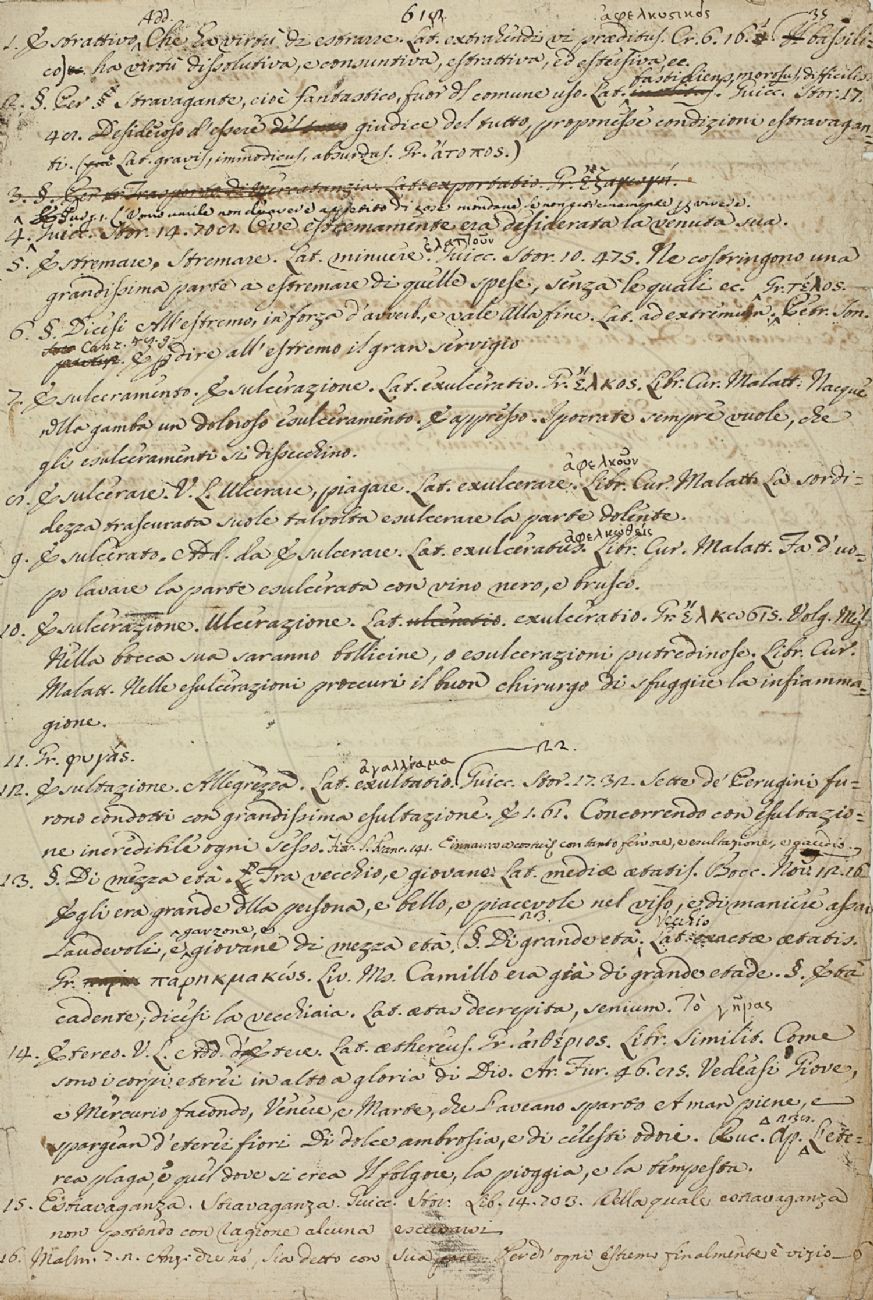 Add. 612. ἀφελκυστικός 35
1. Estrattivo. Che ha virtù di estrarre. Lat. extrahendi vi præditus. Cr. 6. 16. bassili-
co) ha virtù dissolutiva, e consuntiva, estrattiva, ed estersiva ec.
fastidiens, morosus, difficilis
2. §. Per Stravagante, cioè fantastico, fuor del comune uso. Lat. Guicc. Stor. 17.
42. Desideroso d'essere giudice del tutto, proponesse condizioni estravagan-
ti. (Lat. gravis, immodicus, absurdus. Gr. ἄτοπος.)
3. §. Per Trasporto di Mercatanzia. Lat. exportatio. Gr. ἐξαγωγή.
4. Guicc. Stor. 14. 702. Ove estremamente era desiderata la venuta sua.
ἐλαττοῦν
5. Estremare, Stremare. Lat. minuere. Guicc. Stor. 10. 475. Ne costringono una
grandissima parte a estremare di quelle spese, senza le quali ec. Gr. τέλος.
6. §. Dicesi All'estremo, in forza d'avverb., e vale Alla fine. Lat. ad extremum. Petr. Son.
Canz. E perdire all'estremo il gran servigio
7. Esulceramento. Esulcerazione. Lat. exulceratio. Gr. ἕλκος. Libr. Cur. Malatt. Nacque
nella gamba un doloroso esulceramento. E appresso. Ipocrate sempre vuole, che
gli esulceramenti si disecchino.
ἀφελκοῦν
8. Esulcerare. V. L. Ulcerare, piagare. Lat. exulcerare. Libr. Cur. Malatt. La sordi-
dezza trascurata suole talvolta esulcerare la parte dolente.
ἀφελκωθείς
9. Esulcerato. Add. da Esulcerare. Lat. exulceratus. Libr. Cur. Malatt. Fa d'uo-
po lavare la parte esulcerata con vino nero, e brusco.
10. Esulcerazione. Ulcerazione. Lat. ulceratio. exulceratio. Gr. ἕλκωσις. Volg. Mes.
Nella bocca sua saranno bollicine, o esulcerazioni putredinose. Libr. Cur.
Malatt. Nelle esulcerazioni proccuri il buon chirurgo di sfuggire la infiamma-
gione.
11. Gr. φυγάς.
ἀγαλλίαμα 22.
12. Esultazione. Allegrezza. Lat. exultatio. Guicc. Stor. 17. 32. Sette de' Perugini fu-
rono condotti con grandissima esultazione. E 1. 61. Concorrendo con esultazio-
ne incredibile ogni sesso. Fior. S. Franc. 141. con tanto fervore, e esultazione, e gaudio
13. §. Di mezza età. Tra vecchio, e giovane. Lat. mediæ ætatis. Bocc. Nov. 12. 16
Egli era grande della persona, e bello, e piacevole nel viso, e di maniere assai
garzone, e 23. Vecchio
laudevoli, e giovane di mezza età. §. Di grande età. Lat. exactæ ætatis.
Gr. παρηκμακώς. Liv. M. Camillo era già di grande etade. §. Età
cadente, dicesi la vecchiaia. Lat. ætas decrepita, senium. Τὸ γῆρας
14. Etereo. V. L. Add. d'Etere. Lat. æthereus. Gr. αἰθέριος. Libr. Similit. Come
sono i corpi eterei in alto a gloria di Dio. Ar. Fur. 46. 85. Vedeasi Giove,
e Mercurio facondo, Venere e Marte, che l'aveano sparto a man piene, e
spargean d'eterei fiori Di dolce ambrosia, e di celesti odori. Ruc. Ap. L'ete-
rea plaga, e quel dove si crea Il folgore, la pioggia, e la tempesta.
15. Estravaganza. Stravaganza. Guicc. Stor. Lib. 14. 703. Della quale estravaganza
non potendo con ragione alcuna
16. Malm. 7. 2. Anzi che nò, sia detto con sua pace Perch' ogni estremo finalmente è vizio